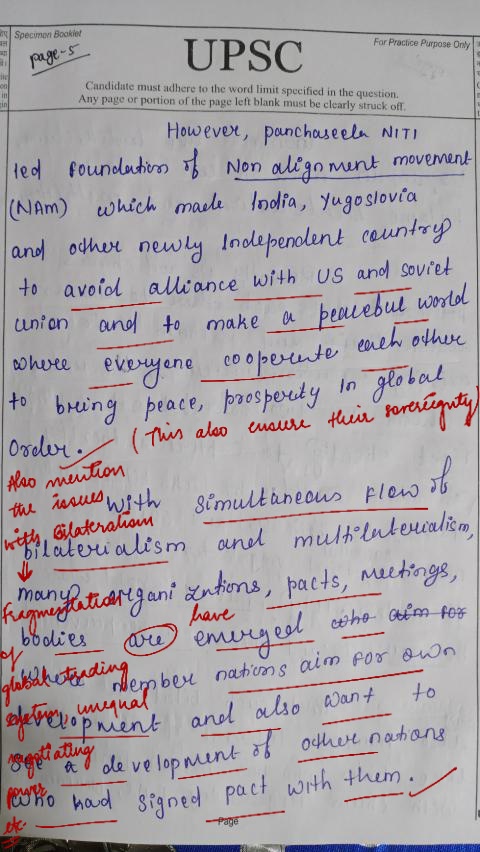 Specimen Booklet
For Practice Purpose Only
page-5
UPSC
Candidate must adhere to the word limit specified in the question.
Any page or portion of the page left blank must be clearly struck off.
However, panchaseela NITI
led foundation of Non alignment movement
(NAM) which made India, Yugoslovia
and other newly Independent country
to avoid alliance with US and soviet
union and to make a peaceful world
where everyone cooperate each other
to bring peace, prosperity In global
Order. (This also ensure their sovereignty)
Also mention
the issues
with Bilateralism
with simultaneous flow of
bilaterialism and multilaterialism,
many organizations, pacts, meetings,
Fragmentation
of
global trading
system, unequal
negotiating
power
etc.
have
bodies are emerged who aim for
where member nations aim for own
development and also want to
see a development of other nations
who had signed pact with them.
Page